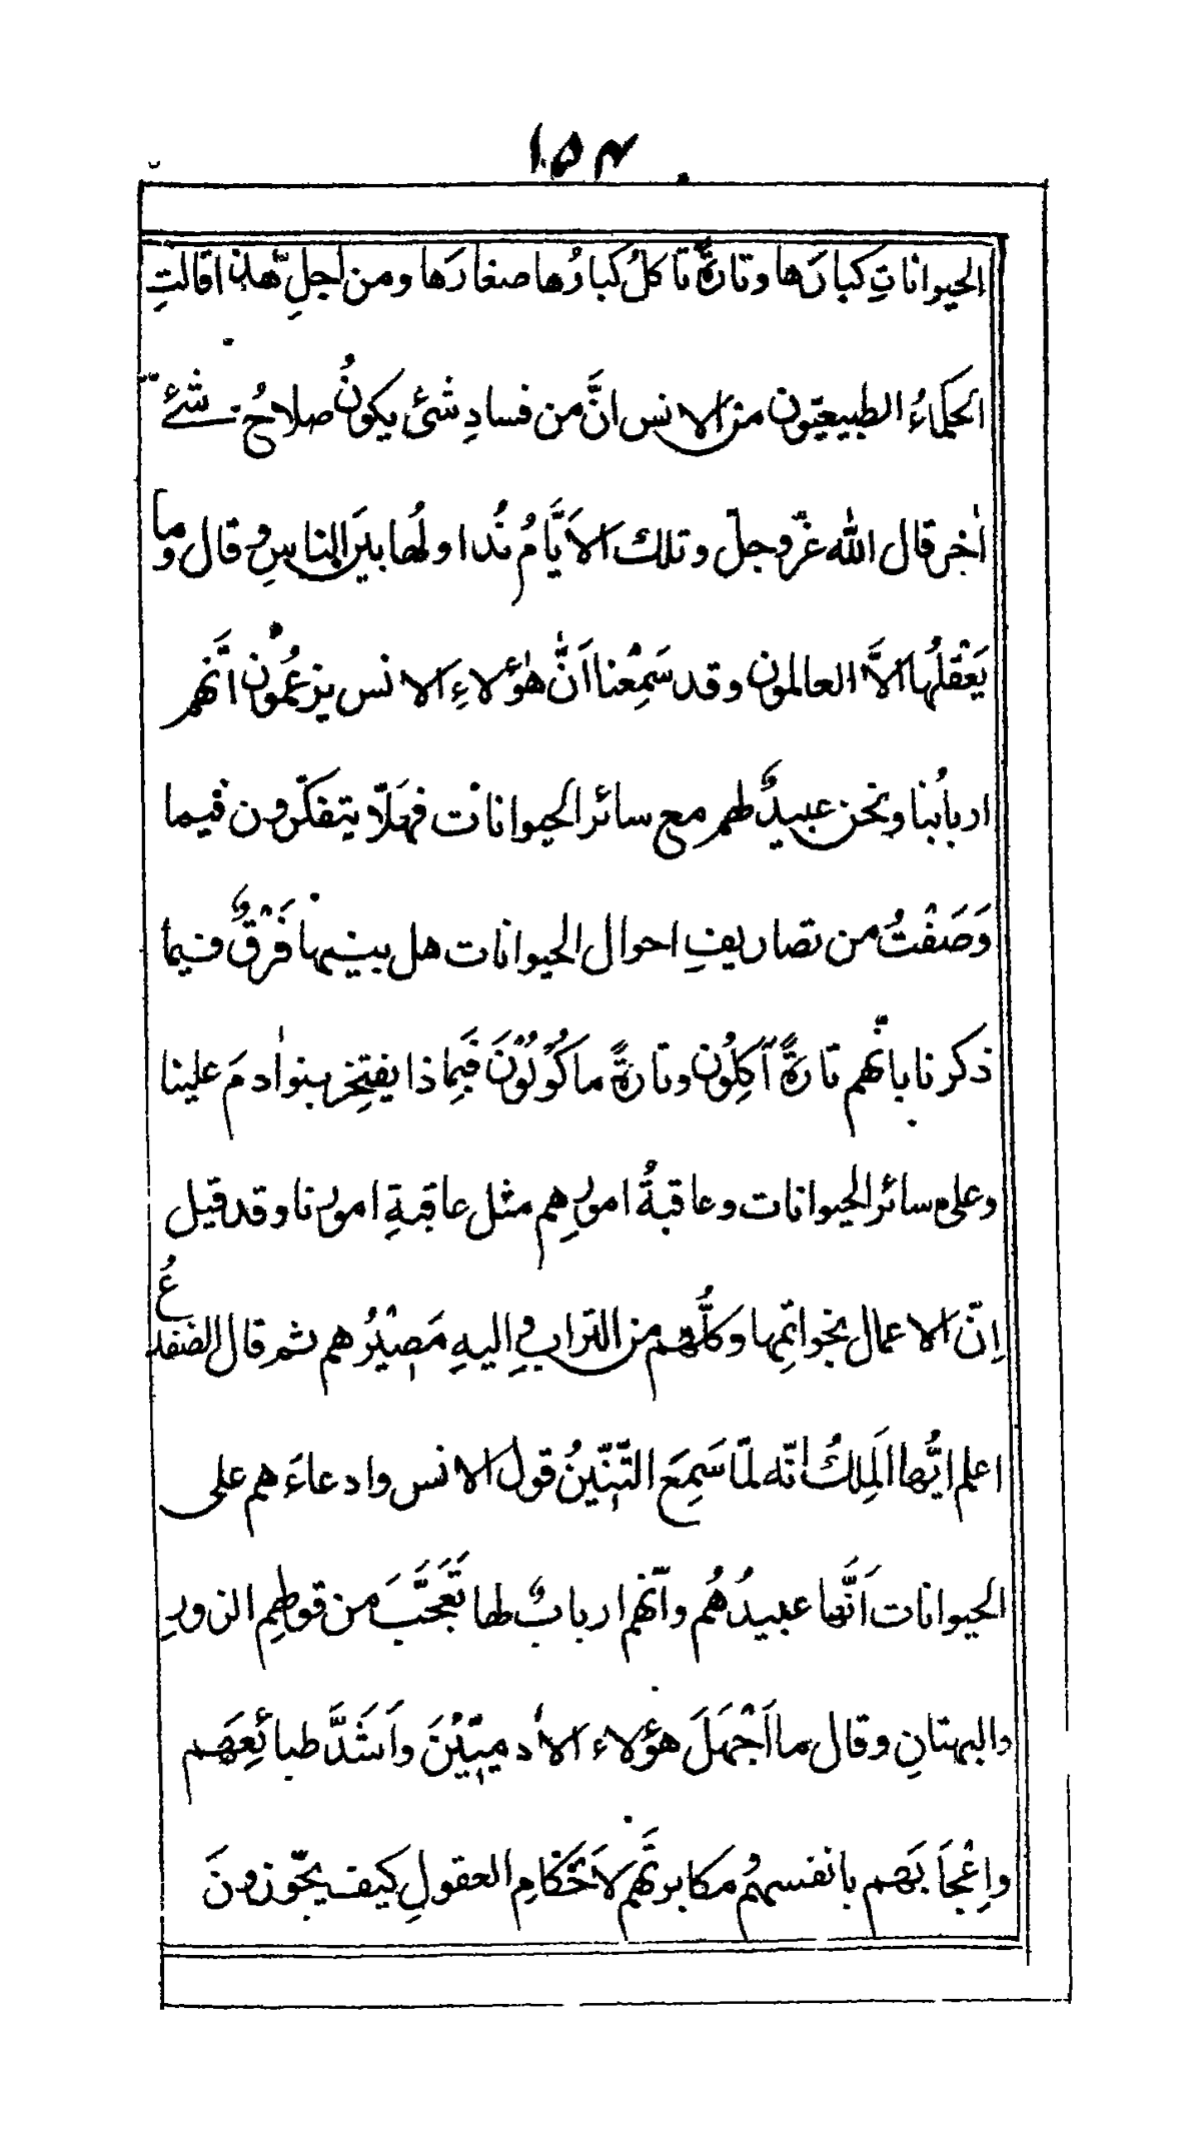 ۱۵۴
الحيواناتِ كبارَها وتارةً تاكلُ كبارُها صغارَها ومن اجلِ هذا قالتِ
الحكماءُ الطبيعيّون من الانس انَّ من فسادِ شئ يكونُ صلاحُ شئے
اٰخر قال اللّٰه عزّ وجلّ وتلك الاَيَّامُ نُداولُها بينَ الناسِ وقال وما
يَعْقلُها الاَّ العالمون وقد سَمِعْنا اَنَّ هٰؤلاءِ الانس يزعُمُون انَّهم
اربابُنا ونحن عبيدٌ لهم مع سائر الحيوانات فهَلَّا يتفكّرون فيما
وَصَفْتُ من تصاريفِ احوال الحيوانات هل بينها فَرْقٌ فيما
ذكرنا بانّهم تارةً آكِلُون وتارةً ماكُوْلُوْنَ فَبِماذا يفتخِر بنواٰدمَ علينا
وعلى سائر الحيوانات وعاقبةُ امورِهم مثل عاقبةِ امورنا وقد قيل
اِنّ الاعمال بخواتِمِها وكلُّهم من الترابِ واليهِ مَصِيْرُهم ثم قال الضفدعُ
اعلم ايُّها المَلِكُ انّه لمّا سَمِعَ التِّنّينُ قولَ الانس وادعاءَهم على
الحيوانات اَنَّها عبيدُهُم وانّهم اربابٌ لها تَعَجَّبَ من قولهِم الزورِ
والبهتانِ وقال ما اَجْهَلَ هؤلاء الاٰدميّيْنَ واَشَدَّ طبائِعَهم
واِعْجاَبَهم بانفسهُم مكابرتَهم لاَحْكامِ العقولِ كيف يجّوزونَ